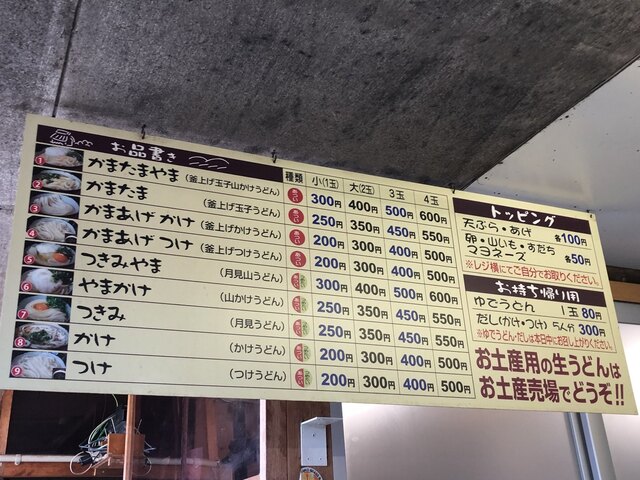 お品書き 種類 小(1玉) 大(2玉) 3玉 4玉
① かまたまやま (釜上げ玉子山かけうどん) あつい 300円 400円 500円 600円
② かまたま (釜上げ玉子うどん) あつい 250円 350円 450円 550円
③ かまあげ かけ (釜上げかけうどん) あつい 200円 300円 400円 500円
④ かまあげ つけ (釜上げつけうどん) あつい 200円 300円 400円 500円
⑤ つきみやま (月見山うどん) 300円 400円 500円 600円
⑥ やまかけ (山かけうどん) 250円 350円 450円 550円
⑦ つきみ (月見うどん) 250円 350円 450円 550円
⑧ かけ (かけうどん) 200円 300円 400円 500円
⑨ つけ (つけうどん) 200円 300円 400円 500円
トッピング
天ぷら・あげ 各100円
卵・山いも・すだち
マヨネーズ 各50円
※レジ横にてご自分でお取りください。
お持ち帰り用
ゆでうどん 1玉 80円
だし(かけ・つけ) 5人分 300円
※ゆでうどん・だしは本日中にお召し上がりください。
お土産用の生うどんは
お土産売場でどうぞ!!